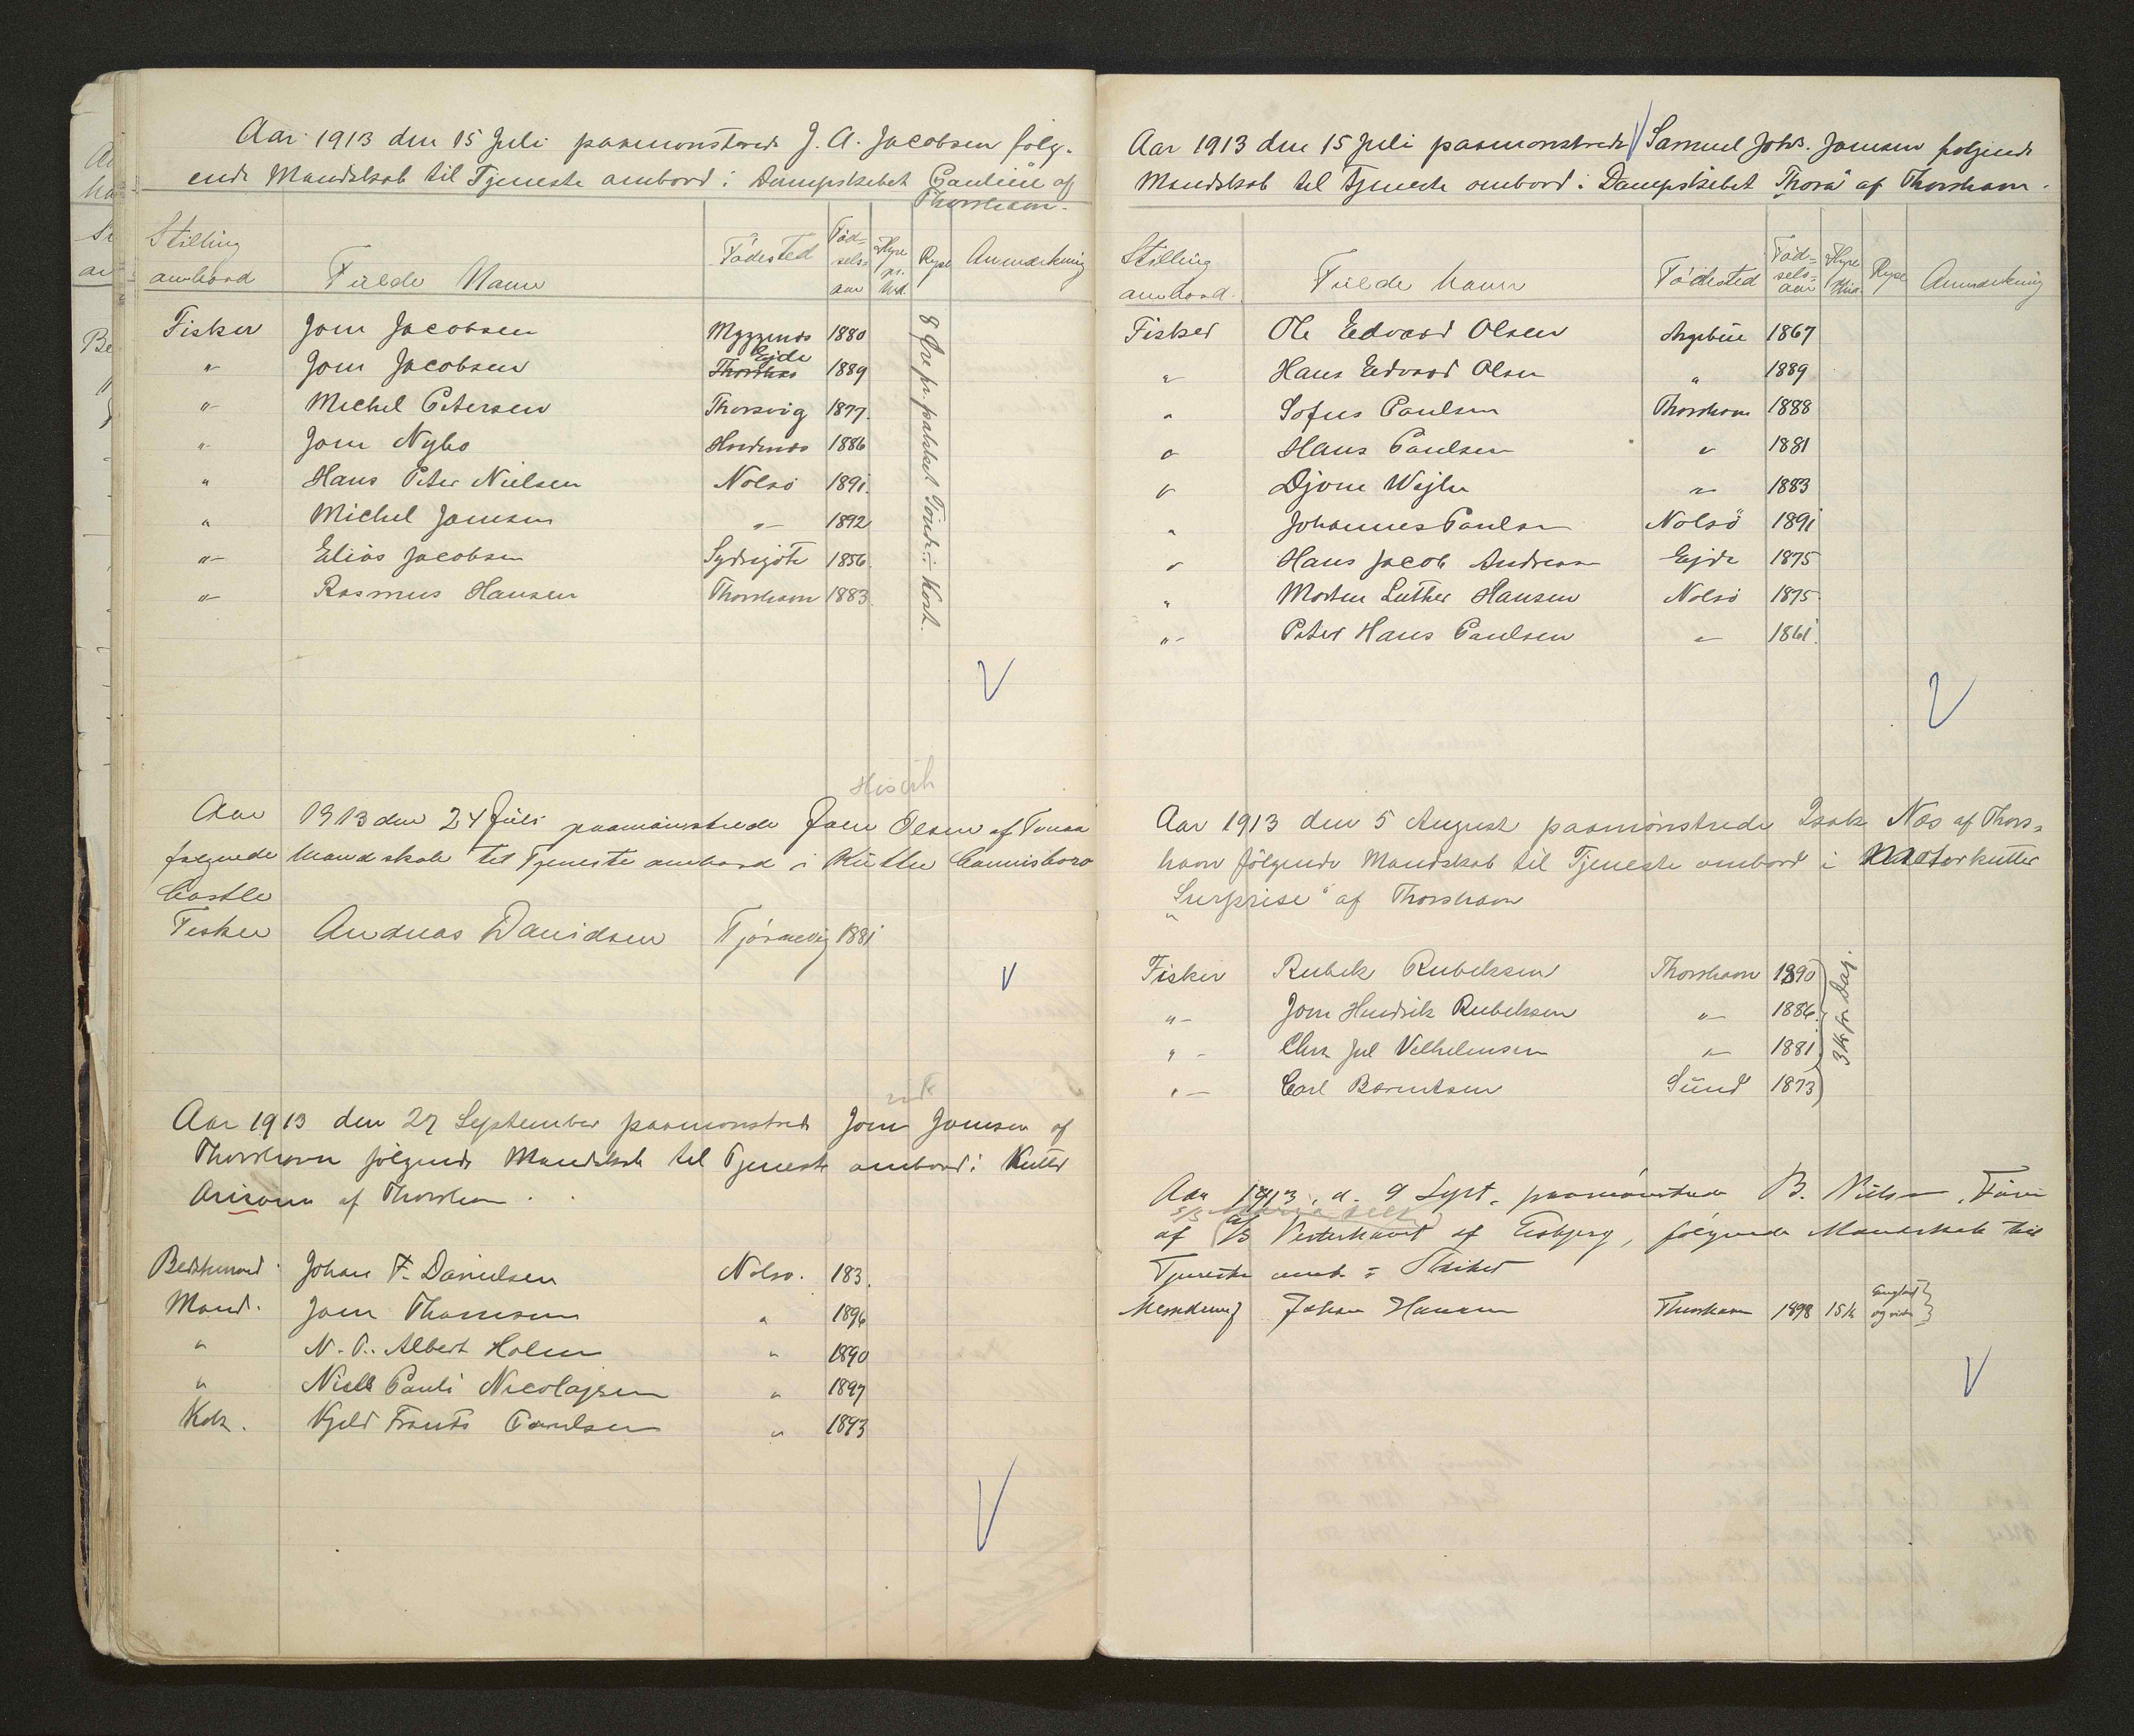 Aar 1913 den 15 Juli paamönstrede J. A. Jacobsen fölg-
ende Mandskab til Tjeneste ombord i Dampskibet Pauline af
Thorshavn.
Stilling ombord Fulde Navn Födested Födselsaar Hyre pr. Md. Rejse Anmærkning
Fisker Joen Jacobsen Myggenæs 1880
" Joen Jacobsen Thorshav Ejde 1889
" Michel Petersen Thorsvig 1877.
" Joen Nybo Hvidenæs 1886
" Hans Peter Nielsen Nolsö 1891.
" Michel Joensen " 1892
" Elias Jacobsen Sydregjöte 1856.
" Rasmus Hansen Thorshavn 1883.
8 Øre pr. pakket Tönde i Kost.
Aar 1913 den 24 Juli paamönstrede Joen Olsen af
følgende Mandskab til Tjeneste ombord i Kutter Connisboro
Castle
Fisker Andreas Davidsen Tjörnevig 1881
Aar 1913 den 27 September paamönstrede Joen Joensen af
Thorshavn følgende Mandskab til Tjeneste ombord i Kutter
Arisona af Thorshavn.
Bedstemand Johan F. Danielsen Nolsö. 183.
Mand. Joen Thomsen " 1896
" N. P. Albert Holm " 1890
" Niels Pauli Nicolajsen " 1897
Kok. Kjeld Frants Poulsen " 1893
Aar 1913 den 15 Juli paamönstrede Samuel Johs. Joensen følgende
Mandskab til Tjeneste ombord i Dampskibet "Thora" af Thorshavn.
Stilling ombord. Fulde Navn Födested Födselsaar Hyre Md. Rejse Anmærkning
Fisker Ole Edvard Olsen Argebúe 1867
" Hans Edvard Olsen " 1889
" Sofus Poulsen Thorshavn 1888
" Hans Poulsen " 1881
" Djone Wejhe " 1883
" Johannes Poulsen Nolsö 1891
" Hans Jacob Andreasen Ejde 1875
" Morten Luther Hansen Nolsö 1875
" Peter Hans Poulsen " 1861.
Aar 1913 den 5 August paamönstrede Isak Næs af Thors-
havn fölgende Mandskab til Tjeneste ombord i Motorkutter
"Surprise" af Thorshavn
Fisker Rubek Rubeksen Thorshavn 1890
" Joen Hendrik Rubeksen " 1886.
" Chr. Jul Vilhelmsen " 1881
" Carl Berentsen Sund 1873
3 Kr. pr. Dag.
Aar 1913, d. 9 Sept. paamönstrede B. Nielsen, Förer
af S/S Vesterhavet af Esbjerg, følgende Mandskab til
Tjeneste omb. i Skibet
Messedreng Johan Hansen Thorshavn 1898 15 k England og videre